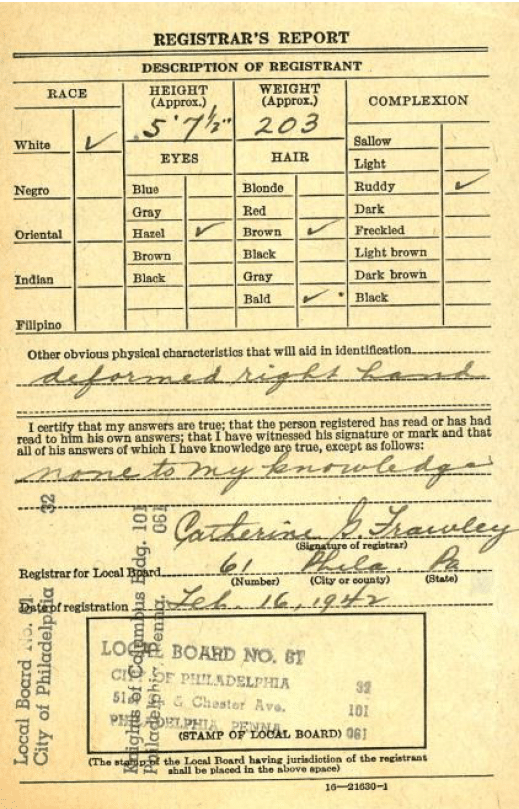 REGISTRAR'S REPORT
DESCRIPTION OF REGISTRANT
RACE
HEIGHT
(Approx.)
WEIGHT
(Approx.)
COMPLEXION
5' 7 1/2"
203
White ✓
Sallow
EYES
HAIR
Light
Negro
Blue
Blonde
Ruddy ✓
Gray
Red
Dark
Oriental
Hazel ✓
Brown ✓
Freckled
Brown
Black
Light brown
Indian
Black
Gray
Dark brown
Bald ✓
Black
Filipino
Other obvious physical characteristics that will aid in identification
deformed right hand
I certify that my answers are true; that the person registered has read or has had
read to him his own answers; that I have witnessed his signature or mark and that
all of his answers of which I have knowledge are true, except as follows:
none to my knowledge
Catherine G. Frawley
(Signature of registrar)
Registrar for Local Board 61 Phila. Pa
(Number) (City or county) (State)
Date of registration Feb. 16, 1942
Local Board No.
City of Philadelphia 32
Knights of Columbus Bldg. 101
Philadelphia, Penna. 061
LOCAL BOARD NO.
CITY OF PHILADELPHIA 32
& Chester Ave. 101
PHILADELPHIA, PENNA. 061
(STAMP OF LOCAL BOARD)
(The stamp of the Local Board having jurisdiction of the registrant
shall be placed in the above space)
16—21630-1